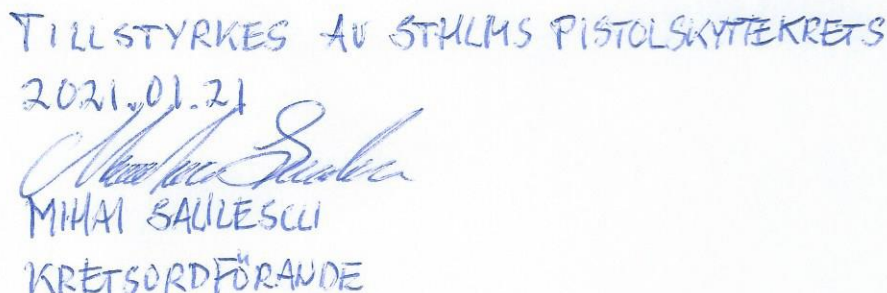 TILLSTYRKES AV STHLMS PISTOLSKYTTEKRETS
2021.01.21
MIHAI SAULESCU
KRETSORDFÖRANDE